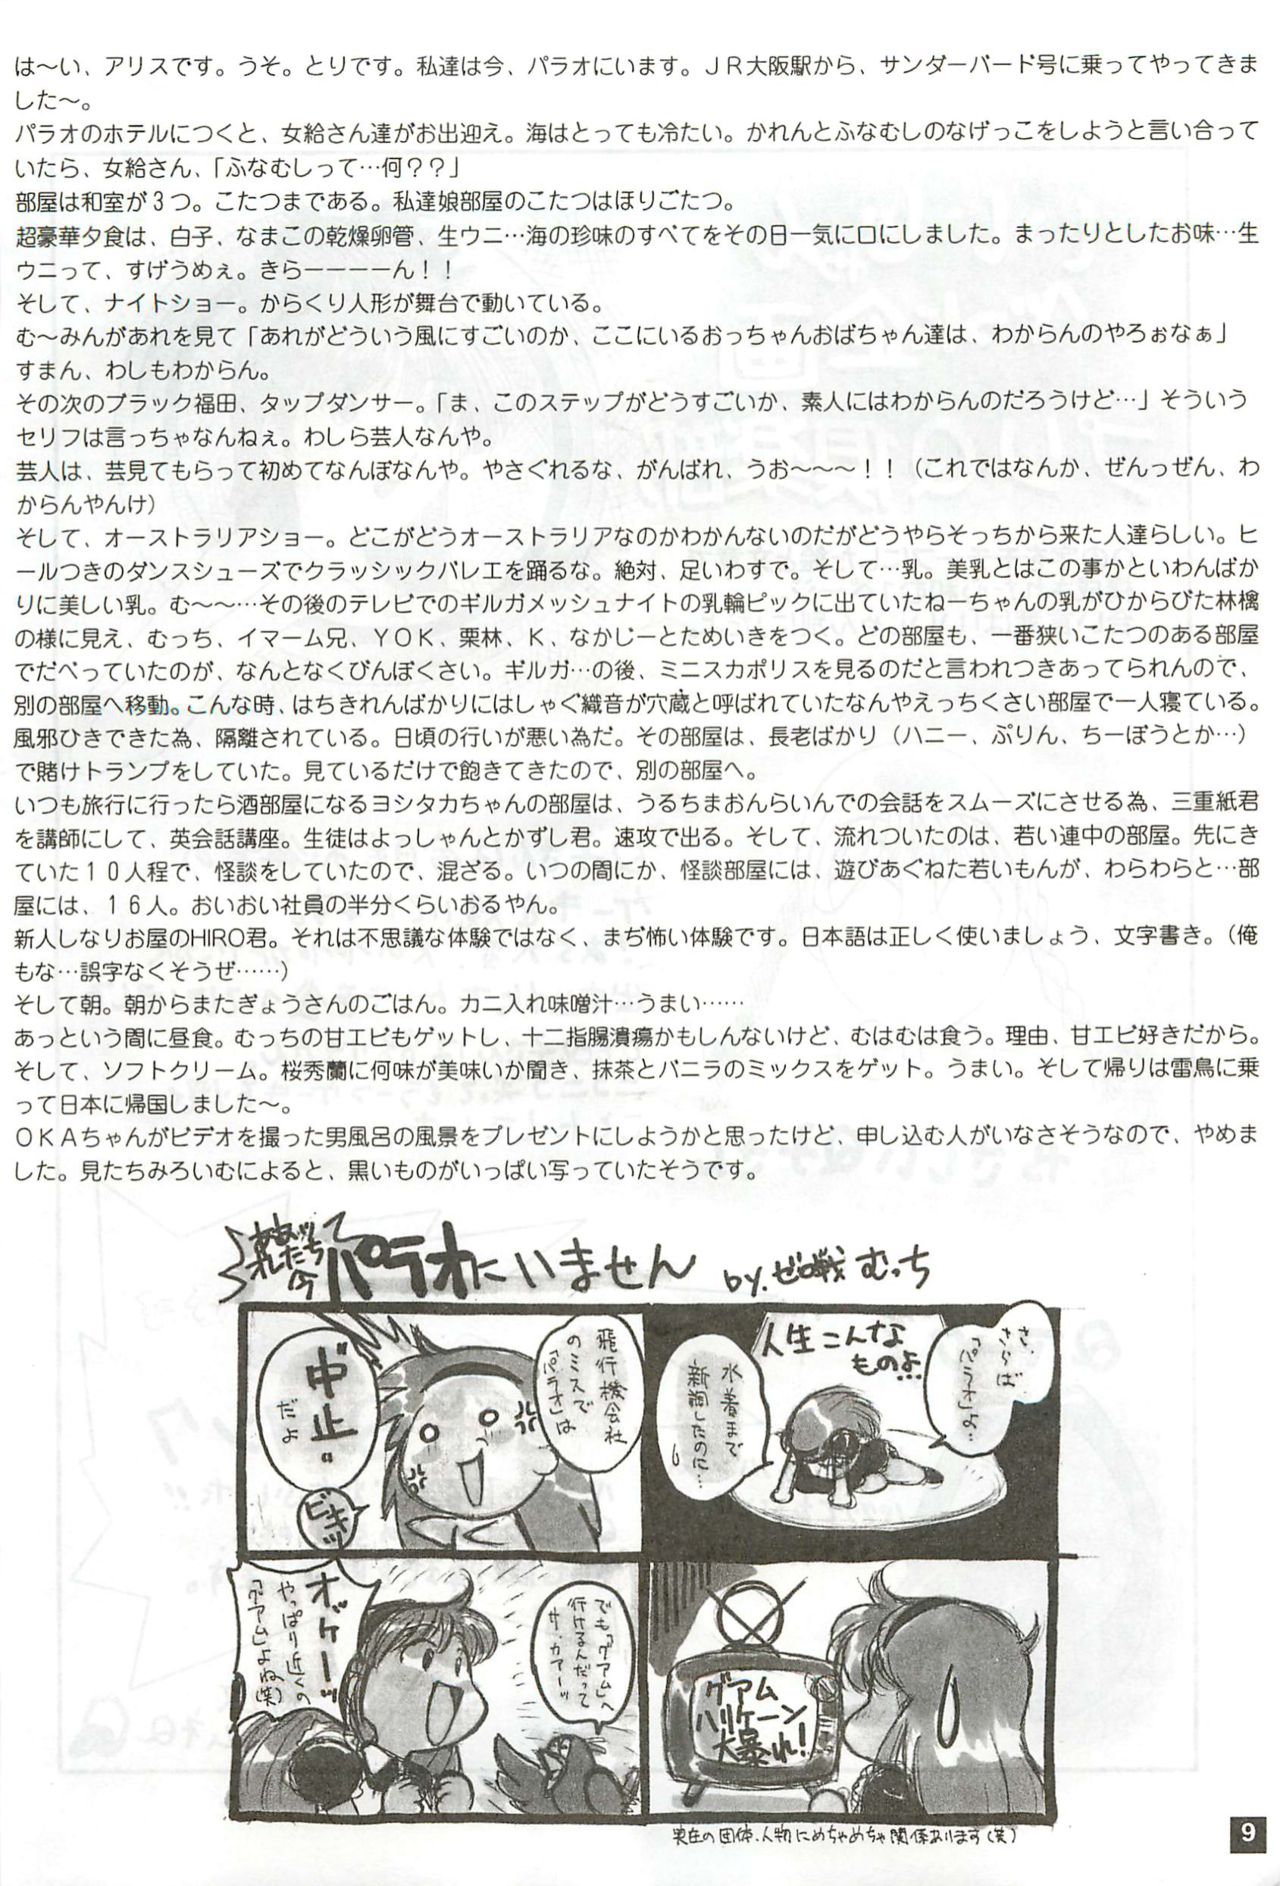 は～い、アリスです。うそ。とりです。私達は今、パラオにいます。ＪＲ大阪駅から、サンダーバード号に乗ってやってきま
した～。
パラオのホテルにつくと、女給さん達がお出迎え。海はとっても冷たい。かれんとふなむしのなげっこをしようと言い合って
いたら、女給さん、「ふなむしって…何？？」
部屋は和室が３つ。こたつまである。私達娘部屋のこたつはほりごたつ。
超豪華夕食は、白子、なまこの乾燥卵管、生ウニ…海の珍味のすべてをその日一気に口にしました。まったりとしたお味…生
ウニって、すげうめぇ。きらーーーーん！！
そして、ナイトショー。からくり人形が舞台で動いている。
む～みんがあれを見て「あれがどういう風にすごいのか、ここにいるおっちゃんおばちゃん達は、わからんのやろぉなぁ」
すまん、わしもわからん。
その次のブラック福田、タップダンサー。「ま、このステップがどうすごいか、素人にはわからんのだろうけど…」そういう
セリフは言っちゃなんねぇ。わしら芸人なんや。
芸人は、芸見てもらって初めてなんぼなんや。やさぐれるな、がんばれ、うお～～～！！（これではなんか、ぜんっぜん、わ
からんやんけ）
そして、オーストラリアショー。どこがどうオーストラリアなのかわかんないのだがどうやらそっちから来た人達らしい。ヒ
ールつきのダンスシューズでクラッシックバレエを踊るな。絶対、足いわすで。そして…乳。美乳とはこの事かといわんばか
りに美しい乳。む～～…その後のテレビでのギルガメッシュナイトの乳輪ピックに出ていたねーちゃんの乳がひからびた林檎
の様に見え、むっち、イマーム兄、ＹＯＫ、栗林、Ｋ、なかじーとためいきをつく。どの部屋も、一番狭いこたつのある部屋
でだべっていたのが、なんとなくびんぼくさい。ギルガ…の後、ミニスカポリスを見るのだと言われつきあってられんので、
別の部屋へ移動。こんな時、はちきれんばかりにはしゃぐ織音が穴蔵と呼ばれていたなんやえっちくさい部屋で一人寝ている。
風邪ひきできた為、隔離されている。日頃の行いが悪い為だ。その部屋は、長老ばかり（ハニー、ぷりん、ちーぼうとか…）
で賭けトランプをしていた。見ているだけで飽きてきたので、別の部屋へ。
いつも旅行に行ったら酒部屋になるヨシタカちゃんの部屋は、うるちまおんらいんでの会話をスムーズにさせる為、三重紙君
を講師にして、英会話講座。生徒はよっしゃんとかずし君。速攻で出る。そして、流れついたのは、若い連中の部屋。先にき
ていた１０人程で、怪談をしていたので、混ざる。いつの間にか、怪談部屋には、遊びあぐねた若いもんが、わらわらと…部
屋には、１６人。おいおい社員の半分くらいおるやん。
新人しなりお屋のHIRO君。それは不思議な体験ではなく、まぢ怖い体験です。日本語は正しく使いましょう、文字書き。（俺
もな…誤字なくそうぜ……）
そして朝。朝からまたぎょうさんのごはん。カニ入れ味噌汁…うまい……
あっという間に昼食。むっちの甘エビもゲットし、十二指腸潰瘍かもしんないけど、むはむは食う。理由、甘エビ好きだから。
そして、ソフトクリーム。桜秀蘭に何味が美味いか聞き、抹茶とバニラのミックスをゲット。うまい。そして帰りは雷鳥に乗
って日本に帰国しました～。
ＯＫＡちゃんがビデオを撮った男風呂の風景をプレゼントにしようかと思ったけど、申し込む人がいなさそうなので、やめま
した。見たちみろいむによると、黒いものがいっぱい写っていたそうです。
パラオにいません by.ゼロ戦むっち
さ、
さらば
「パラオ」よ…
人生こんな
ものよ…
水着まで
新調したのに…
飛行機会社
のミスで
「パラオ」は
中止。
だよ
ビキッ
でも「グアム」へ
行けるんだって
サ。カアーッ
オゲーーッ
やっぱり近くの
「グアム」よね(笑)
グアム
ハリケーン
大暴れ!
実在の団体、人物にめちゃめちゃ関係あります(笑)
9